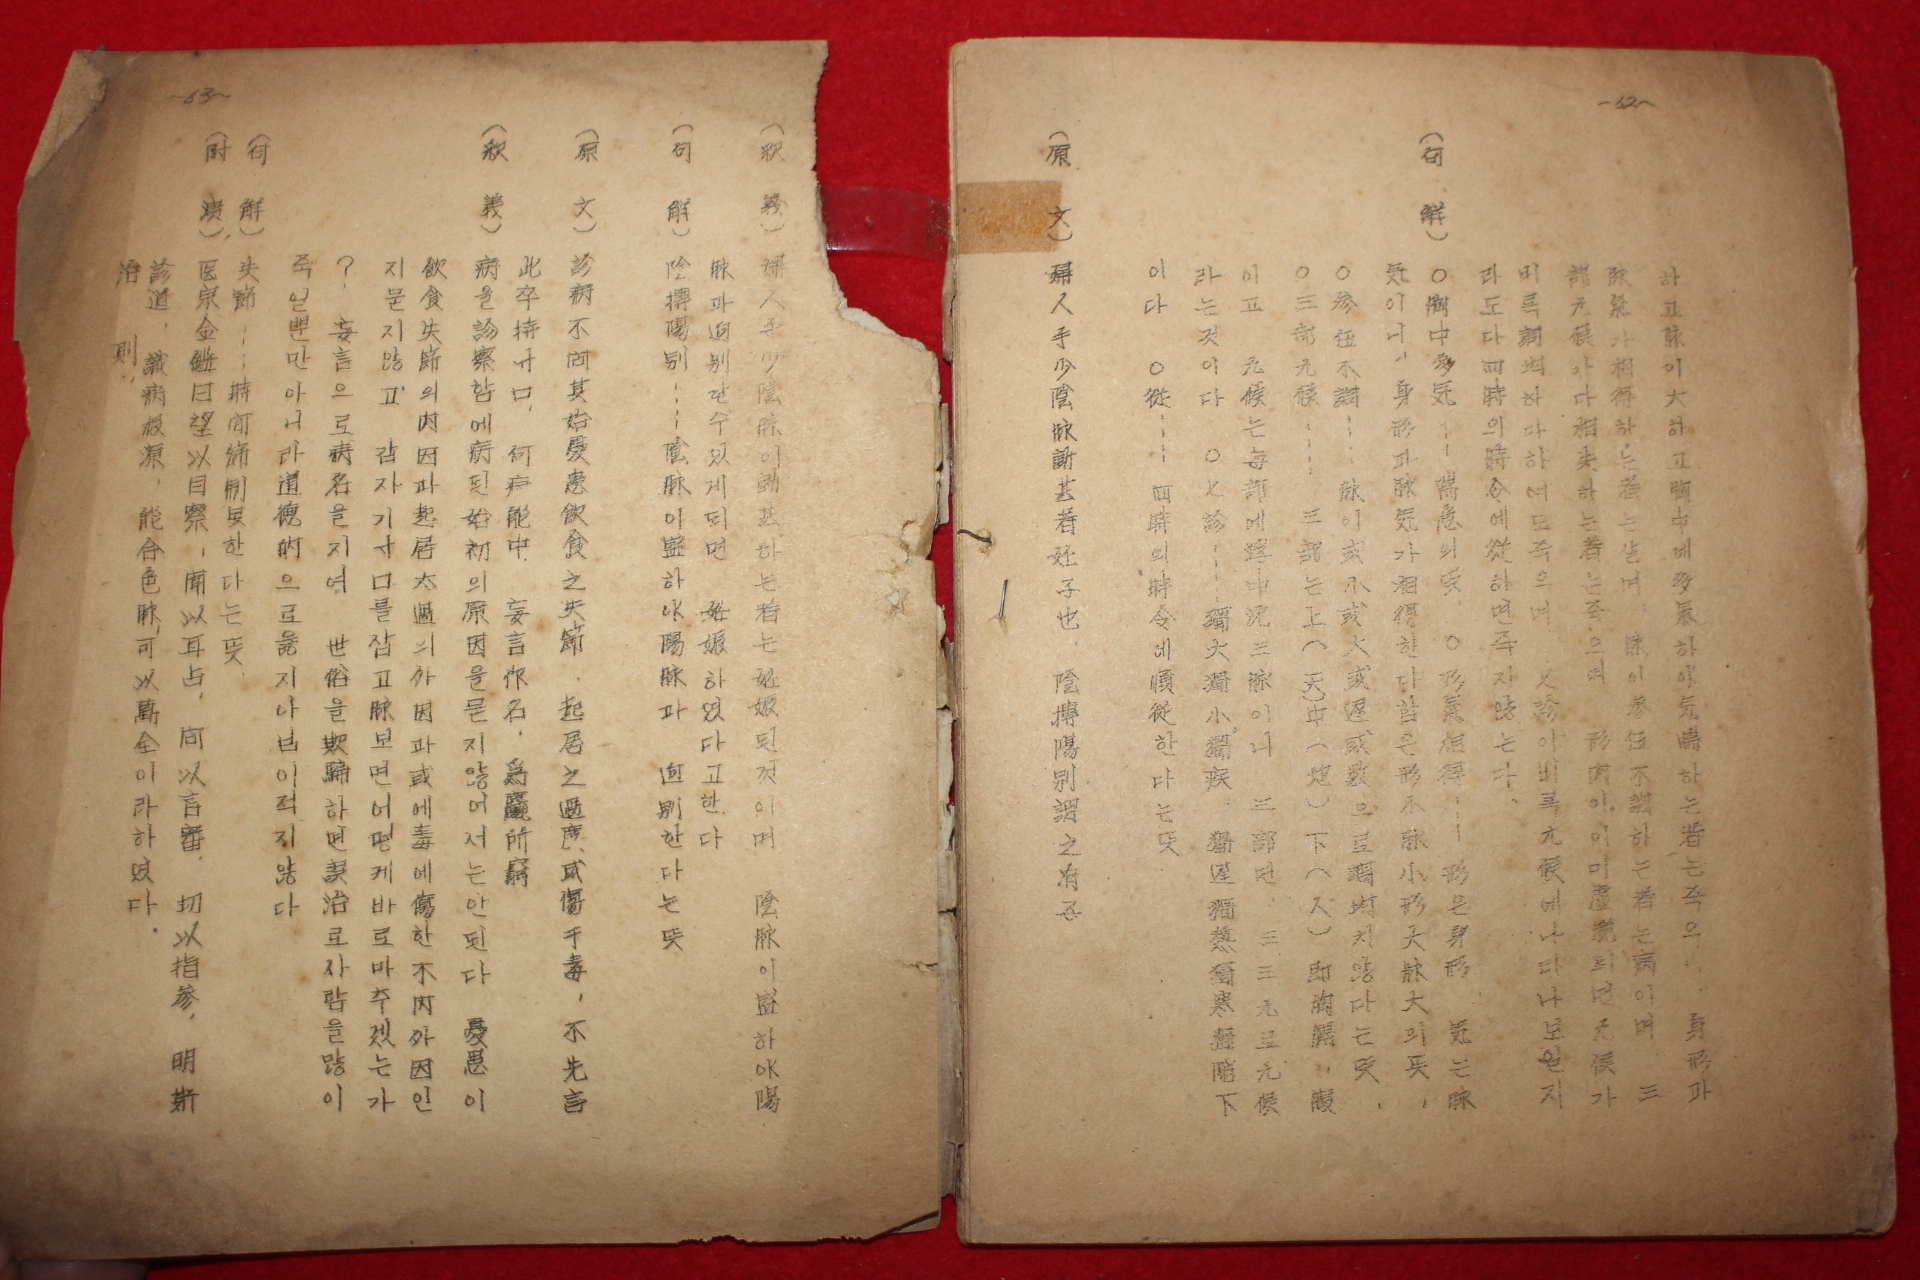 -62~
하고脉이大하고胸中에多氣하야気喘하는者는죽으며. 身形과
脉氣가相得하는者는살며. 脉이參伍不調하는者는病이며 三
部九候가다相失하는者는죽으며 形肉이이미虛脱되면九候가
비록調均하다하여도죽으며 七診이비록九候에나타나보일지
라도다四時의時令에從하면죽지않는다.
(句 解) ○胸中多気⋮喘急의뜻 ○形氣相得⋮形은身形 気는脉
気이니, 身形과脉気가相得한다함은形小脉小形大脉大의뜻,
○參伍不調⋮脉이或小或大或遲或數으로調均치않다는뜻,
○三部九候⋮三部는上(天)中(地)下(人)即胸膈, 腹
이고 九候는每部에浮中沈三脉이니 三部면 三三九로九候
라는것이다 ○七診⋮獨大獨小獨疾 獨遲獨熱獨寒獨陷下
이다 ○從⋮四時의時令에順從한다는뜻
(原 文) 婦人手少陰脉謝甚者姙子也. 陰搏陽別謂之有子
~63~
(釈 義) 婦人手少陰脉이動甚하는者는姙娠된것이며 陰脉이盛하야陽
脉과逈別한수있게되면 姙娠하였다고한다
(句 解) 陰搏陽別⋮陰脉이盛하야陽脉과 逈別한다는뜻
(原 文) 診病不問其始憂患飲食之失節. 起居之過度, 或傷于毒, 不先言
此卒持寸口, 何病能中. 妄言作名, 爲麤所窮
(釈 義) 病을診察함에病된始初의原因을묻지않어서는안된다 憂愚이
飲食失節의内因과起居太過의外因과或에毒에傷한不内外因인
지묻지않고 갑자기寸口를잡고脉보면어떻게바로마추겠는가
? 妄言으로病名을지여 世俗을欺騙하면誤治로사람을많이
죽일뿐만아니라道德的으로옳지아님이적지않다
(句 解) 失節⋮時間節制못한다는뜻.
(附 演) 医宗金鑑曰望以目察, 聞以耳占, 問以言審, 切以指參, 明斯
診道, 識病根源, 能合色脉,可以萬全이라하였다.
治 則,